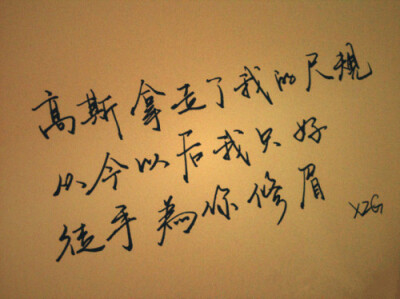 高斯拿走了我的尺規
从今以后我只好
徒手為你修眉
XZG